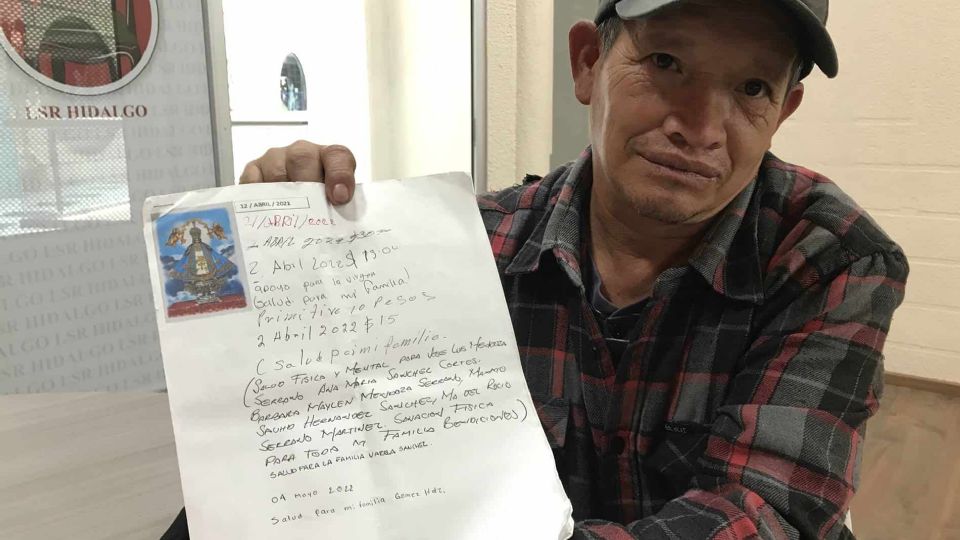 LSR HIDALGO
12 / ABRIL / 2022
21/ABRIL/2022
ABRIL 2022
2 Abil 2022 $ 13.04
apoyo para la virgen
(Salud para mi familia)
Primitivo 10 pesos
2 Abril 2022 $ 15
(Salud pa mi familia.
(SALUD FISICA Y MENTAL PARA JOSE LUIS MENDOZA
SERRANO, ANA MARIA SANCHEZ CORTES.
BARBARA MAYLEN MENDOZA SERRANO,
SAUHO HERNANDEZ SANCHEZ, MA DEL ROCIO
SERRANO MARTINEZ. SANACION FISICA
PARA TODA M. FAMILIA BENDICIONES)
SALUD PARA LA FAMILIA VARELA SANCHEZ.
04 mayo 2022
Salud para mi familia Gomez Hdz.